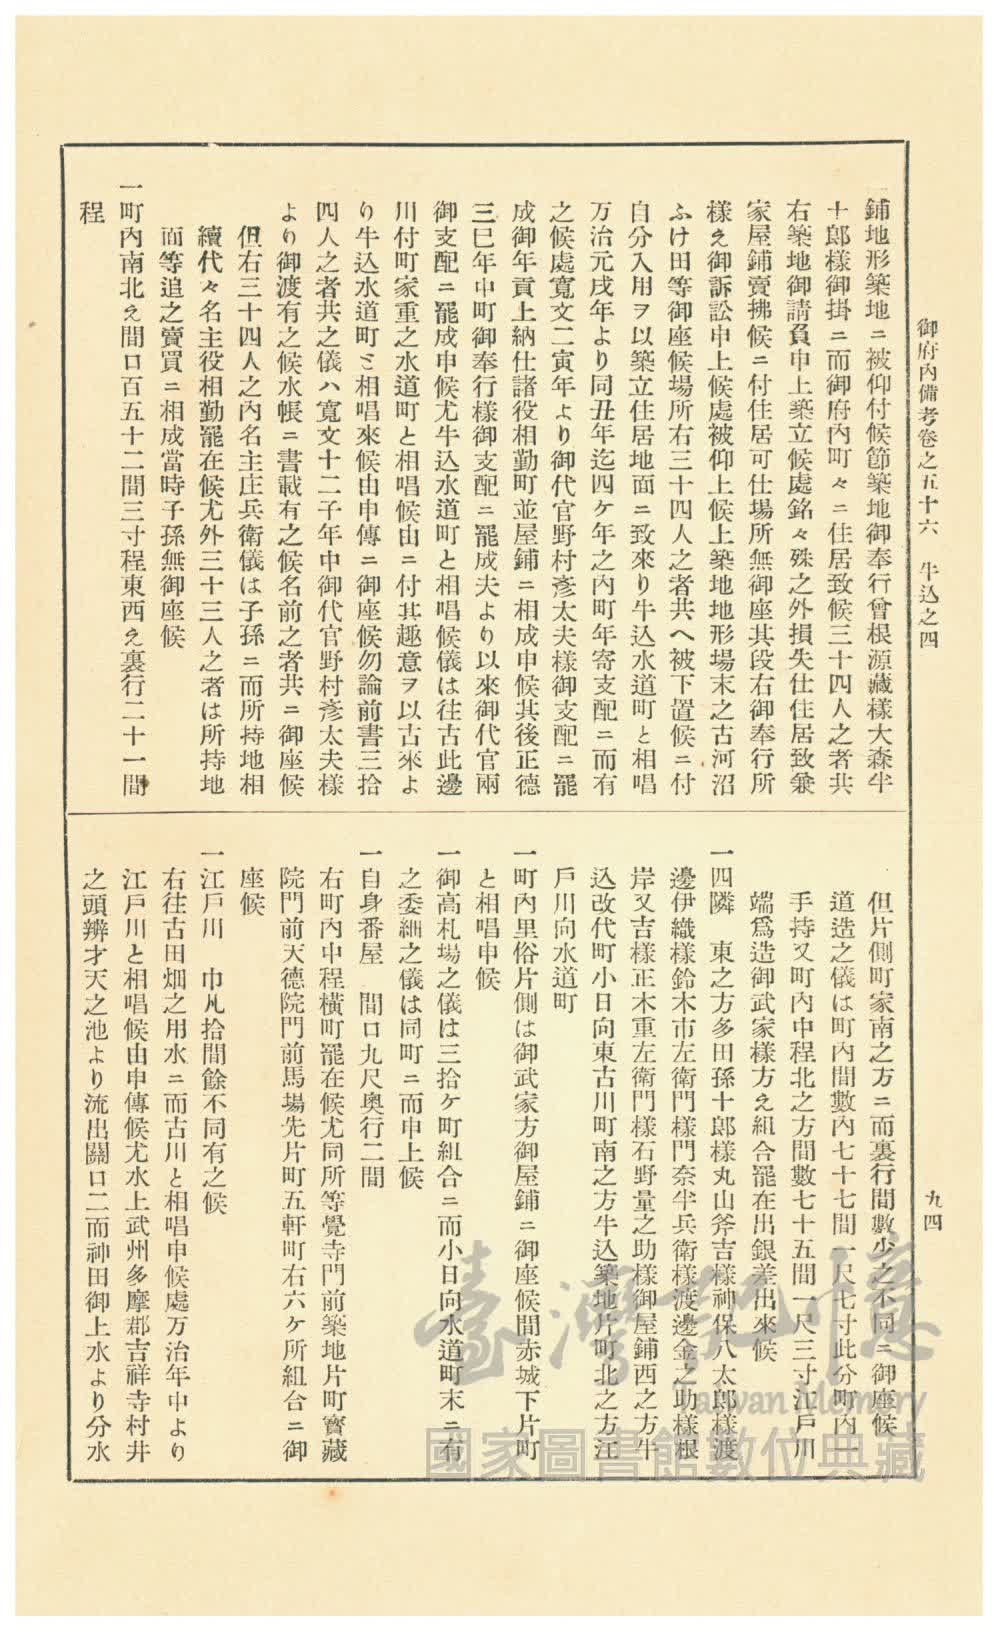 御府內備考卷之五十六　牛込之四
九四
鋪地形築地ニ被仰付候節築地御奉行曾根源藏樣大森半
十郎樣御掛ニ而御府內町々ニ住居致候三十四人之者共
右築地御請負申上築立候處銘々殊之外損失仕住居致兼
家屋鋪賣拂候ニ付住居可仕場所無御座其段右御奉行所
樣え御訴訟申上候處被仰上候上築地地形場末之古河沼
ふけ田等御座候場所右三十四人之者共へ被下置候ニ付
自分入用ヲ以築立住居地面ニ致來り牛込水道町と相唱
万治元戌年より同丑年迄四ケ年之內町年寄支配ニ而有
之候處寬文二寅年より御代官野村彥太夫樣御支配ニ罷
成御年貢上納仕諸役相勤町並屋鋪ニ相成申候其後正德
三巳年中町御奉行樣御支配ニ罷成夫より以來御代官兩
御支配ニ罷成申候尤牛込水道町と相唱候儀は往古此邊
川付町家重之水道町と相唱候由ニ付其趣意ヲ以古來よ
り牛込水道町ミ相唱來候由申傳ニ御座候勿論前書三拾
四人之者共之儀ハ寬文十二子年中御代官野村彥太夫樣
より御渡有之候水帳ニ書載有之候名前之者共ニ御座候
但右三十四人之內名主庄兵衞儀は子孫ニ而所持地相
續代々名主役相勤罷在候尤外三十三人之者は所持地
面等追之賣買ニ相成當時子孫無御座候
一町內南北え間口百五十二間三寸程東西え裏行二十一間
程
但片側町家南之方ニ而裏行間數少之不同ニ御座候
道造之儀は町內間數內七十七間一尺七寸此分町內一
手持又町內中程北之方間數七十五間一尺三寸江戶川
端爲造御武家樣方え組合罷在出銀差出來候
一四隣　東之方多田孫十郎樣丸山斧吉樣神保八太郎樣渡
邊伊織樣鈴木市左衞門樣門奈半兵衞樣渡邊金之助樣根
岸又吉樣正木重左衞門樣石野量之助樣御屋鋪西之方牛
込改代町小日向東古川町南之方牛込築地片町北之方江
戶川向水道町
一町內里俗片側は御武家方御屋鋪ニ御座候間赤城下片町
と相唱申候
一御高札場之儀は三拾ケ町組合ニ而小日向水道町末ニ有
之委細之儀は同町ニ而申上候
一自身番屋　間口九尺奧行二間
右町內中程橫町罷在候尤同所等覺寺門前築地片町寳藏
院門前天德院門前馬場先片町五軒町右六ケ所組合ニ御
座候
一江戶川　巾凡拾間餘不同有之候
右往古田畑之用水ニ而古川と相唱申候處万治年中より
江戶川と相唱候由申傳候尤水上武州多摩郡吉祥寺村井
之頭辨才天之池より流出關口二而神田御上水より分水
臺灣記憶
Taiwan Memory
國家圖書館數位典藏